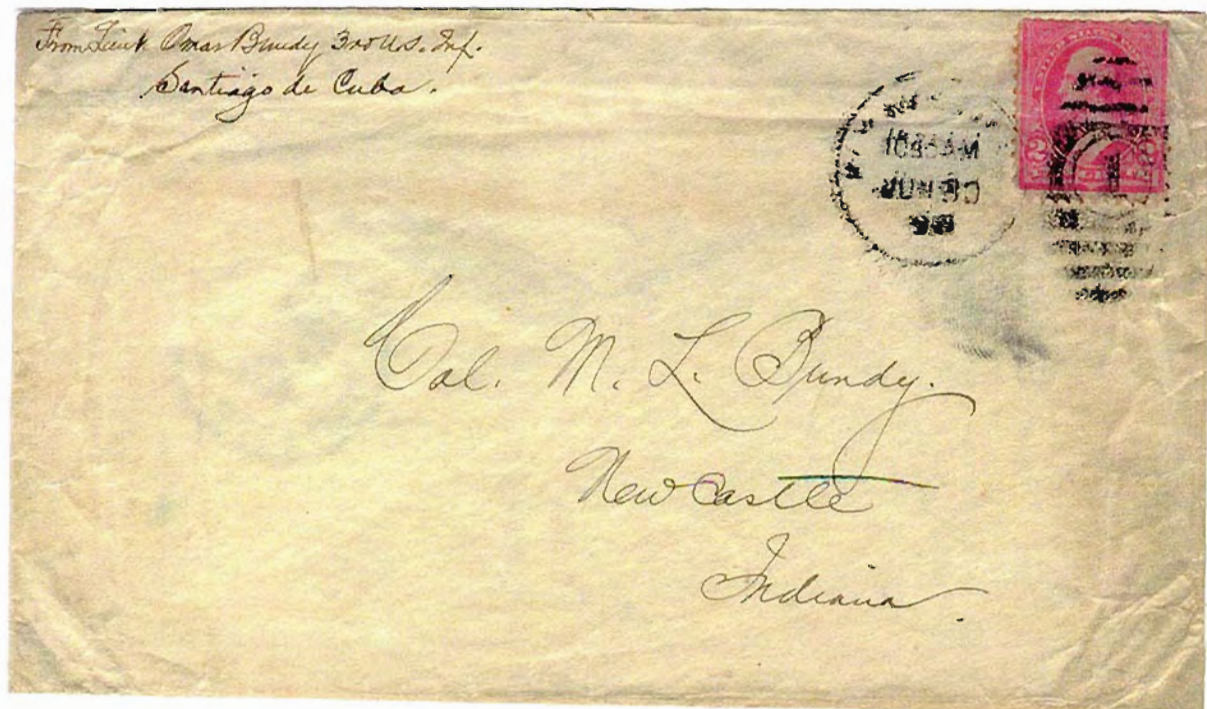 From Lieut Omar Bundy 3rd U.S. Inf.
Santiago de Cuba.
2
Col. M. L. Bundy.
New Castle
Indiana.